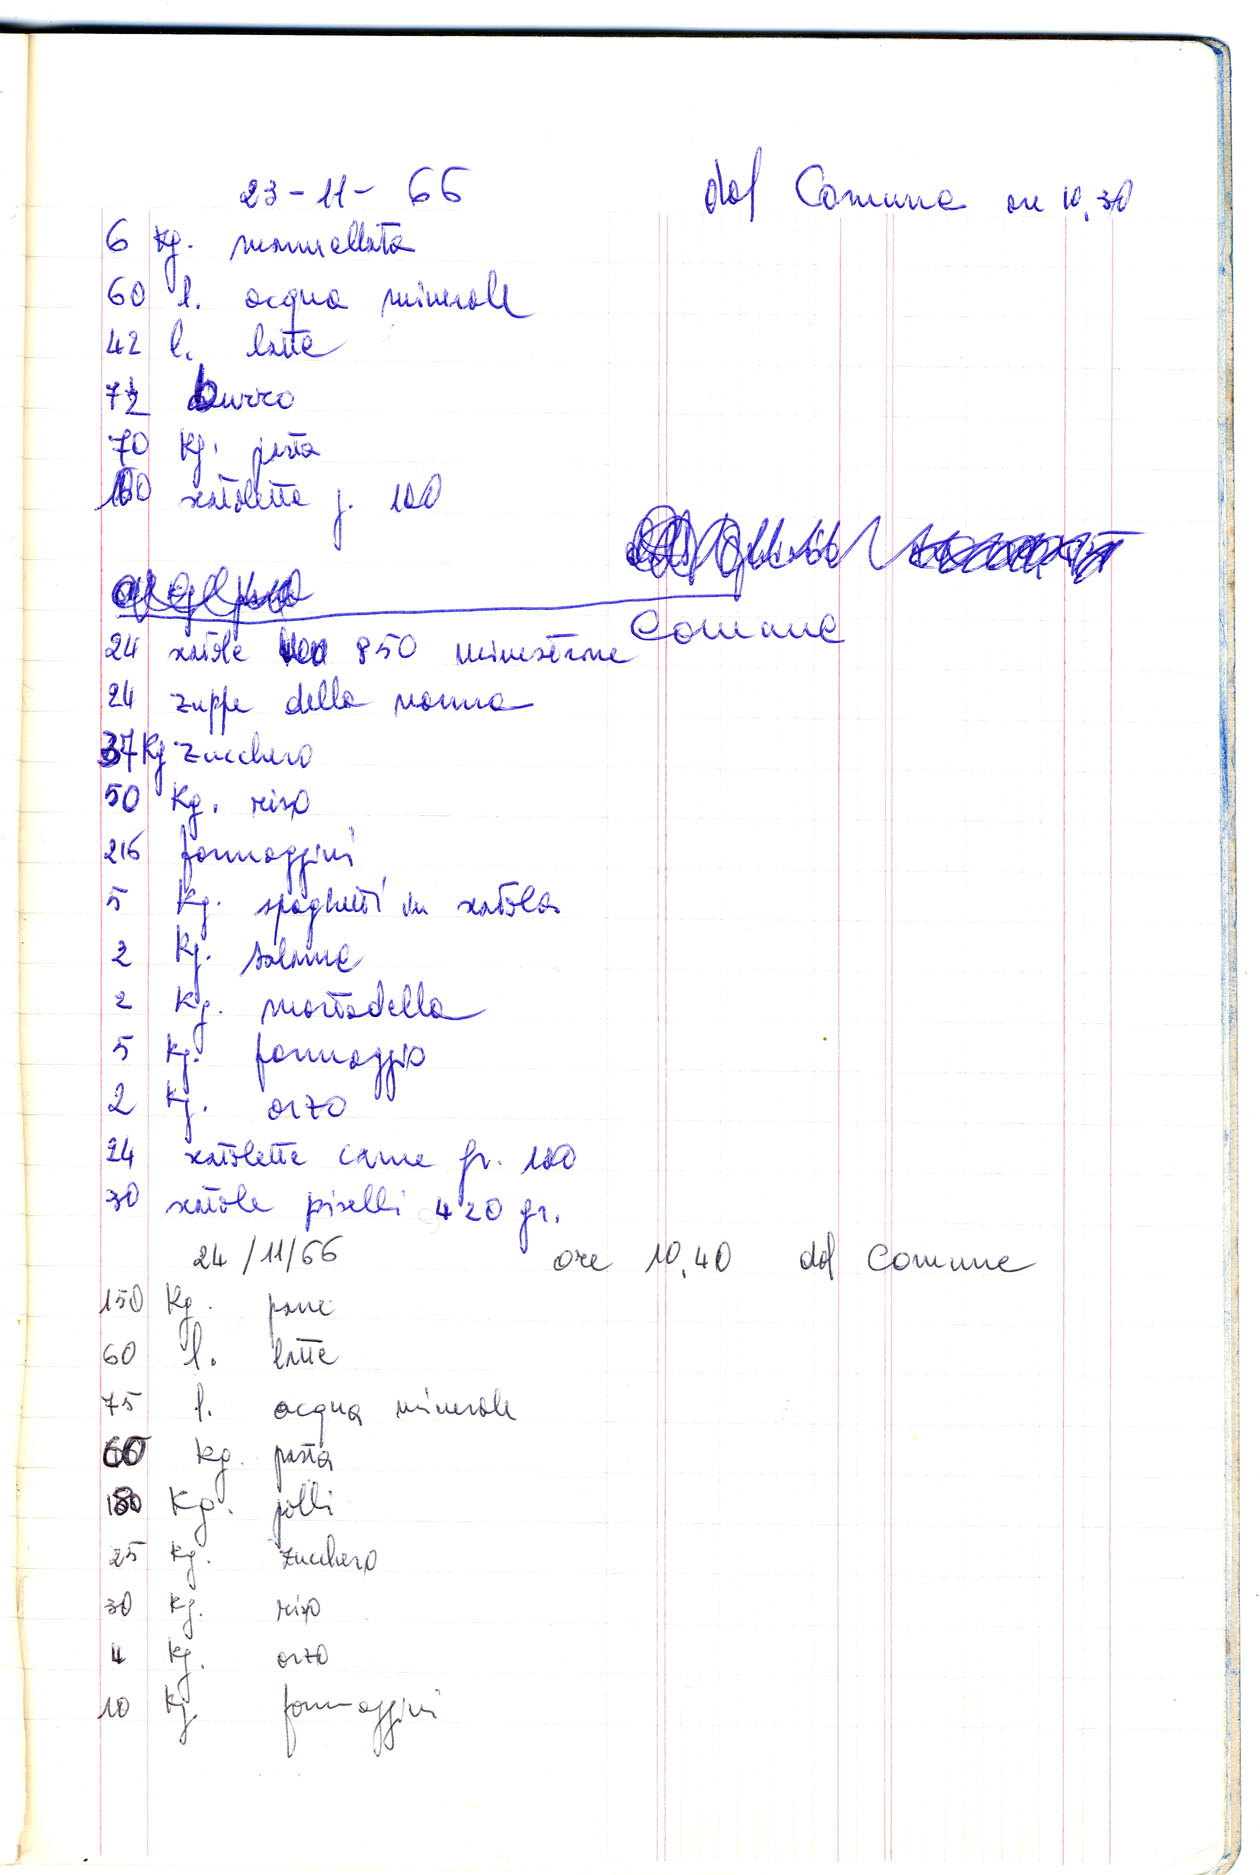 23-11-66 dal Comune ore 10,30
6 Kg. marmellata
60 l. acqua minerale
42 l. latte
7½ burro
70 Kg. pasta
100 scatolette g. 100
Comune
24 scatole 850 minestrone
24 zuppe della nonna
37 Kg zucchero
50 Kg. riso
216 formaggini
5 Kg. spaghetti in scatola
2 Kg. salame
2 Kg. mortadella
5 Kg. formaggio
2 Kg. orzo
24 scatolette carne gr. 100
30 scatole piselli 420 gr.
24/11/66 ore 10,40 dal Comune
150 Kg. pane
60 l. latte
75 l. acqua minerale
Kg. pasta
Kg. polli
25 Kg. zucchero
30 Kg. riso
4 Kg. orzo
10 Kg. formaggini